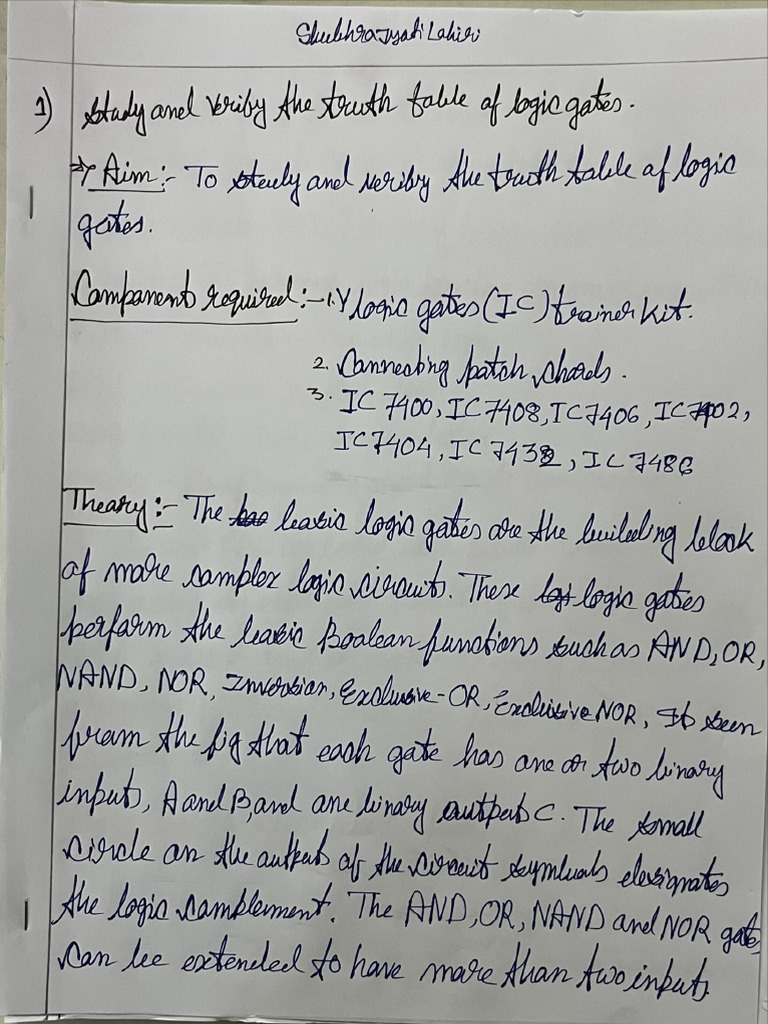 Shubhrajyoti Lahiri
1) Study and verify the truth table of logic gates.
⇒ Aim:- To study and verify the truth table of logic
gates.
Component required:- 1. logic gates (IC) trainer kit.
2. Connecting patch chords.
3. IC 7400, IC 7408, IC 7406, IC 7402,
IC 7404, IC 7432, IC 7486
Theory:- The bas basic logic gates are the building block
of more complex logic circuits. These logi logic gates
perform the basic Boolean functions such as AND, OR,
NAND, NOR, Inversion, Exclusive-OR, Exclusive NOR, It seen
from the fig that each gate has one or two binary
inputs, A and B, and one binary output C. The small
circle on the output of the circuit symbols designates
the logic complement. The AND, OR, NAND and NOR gates
can be extended to have more than two inputs.